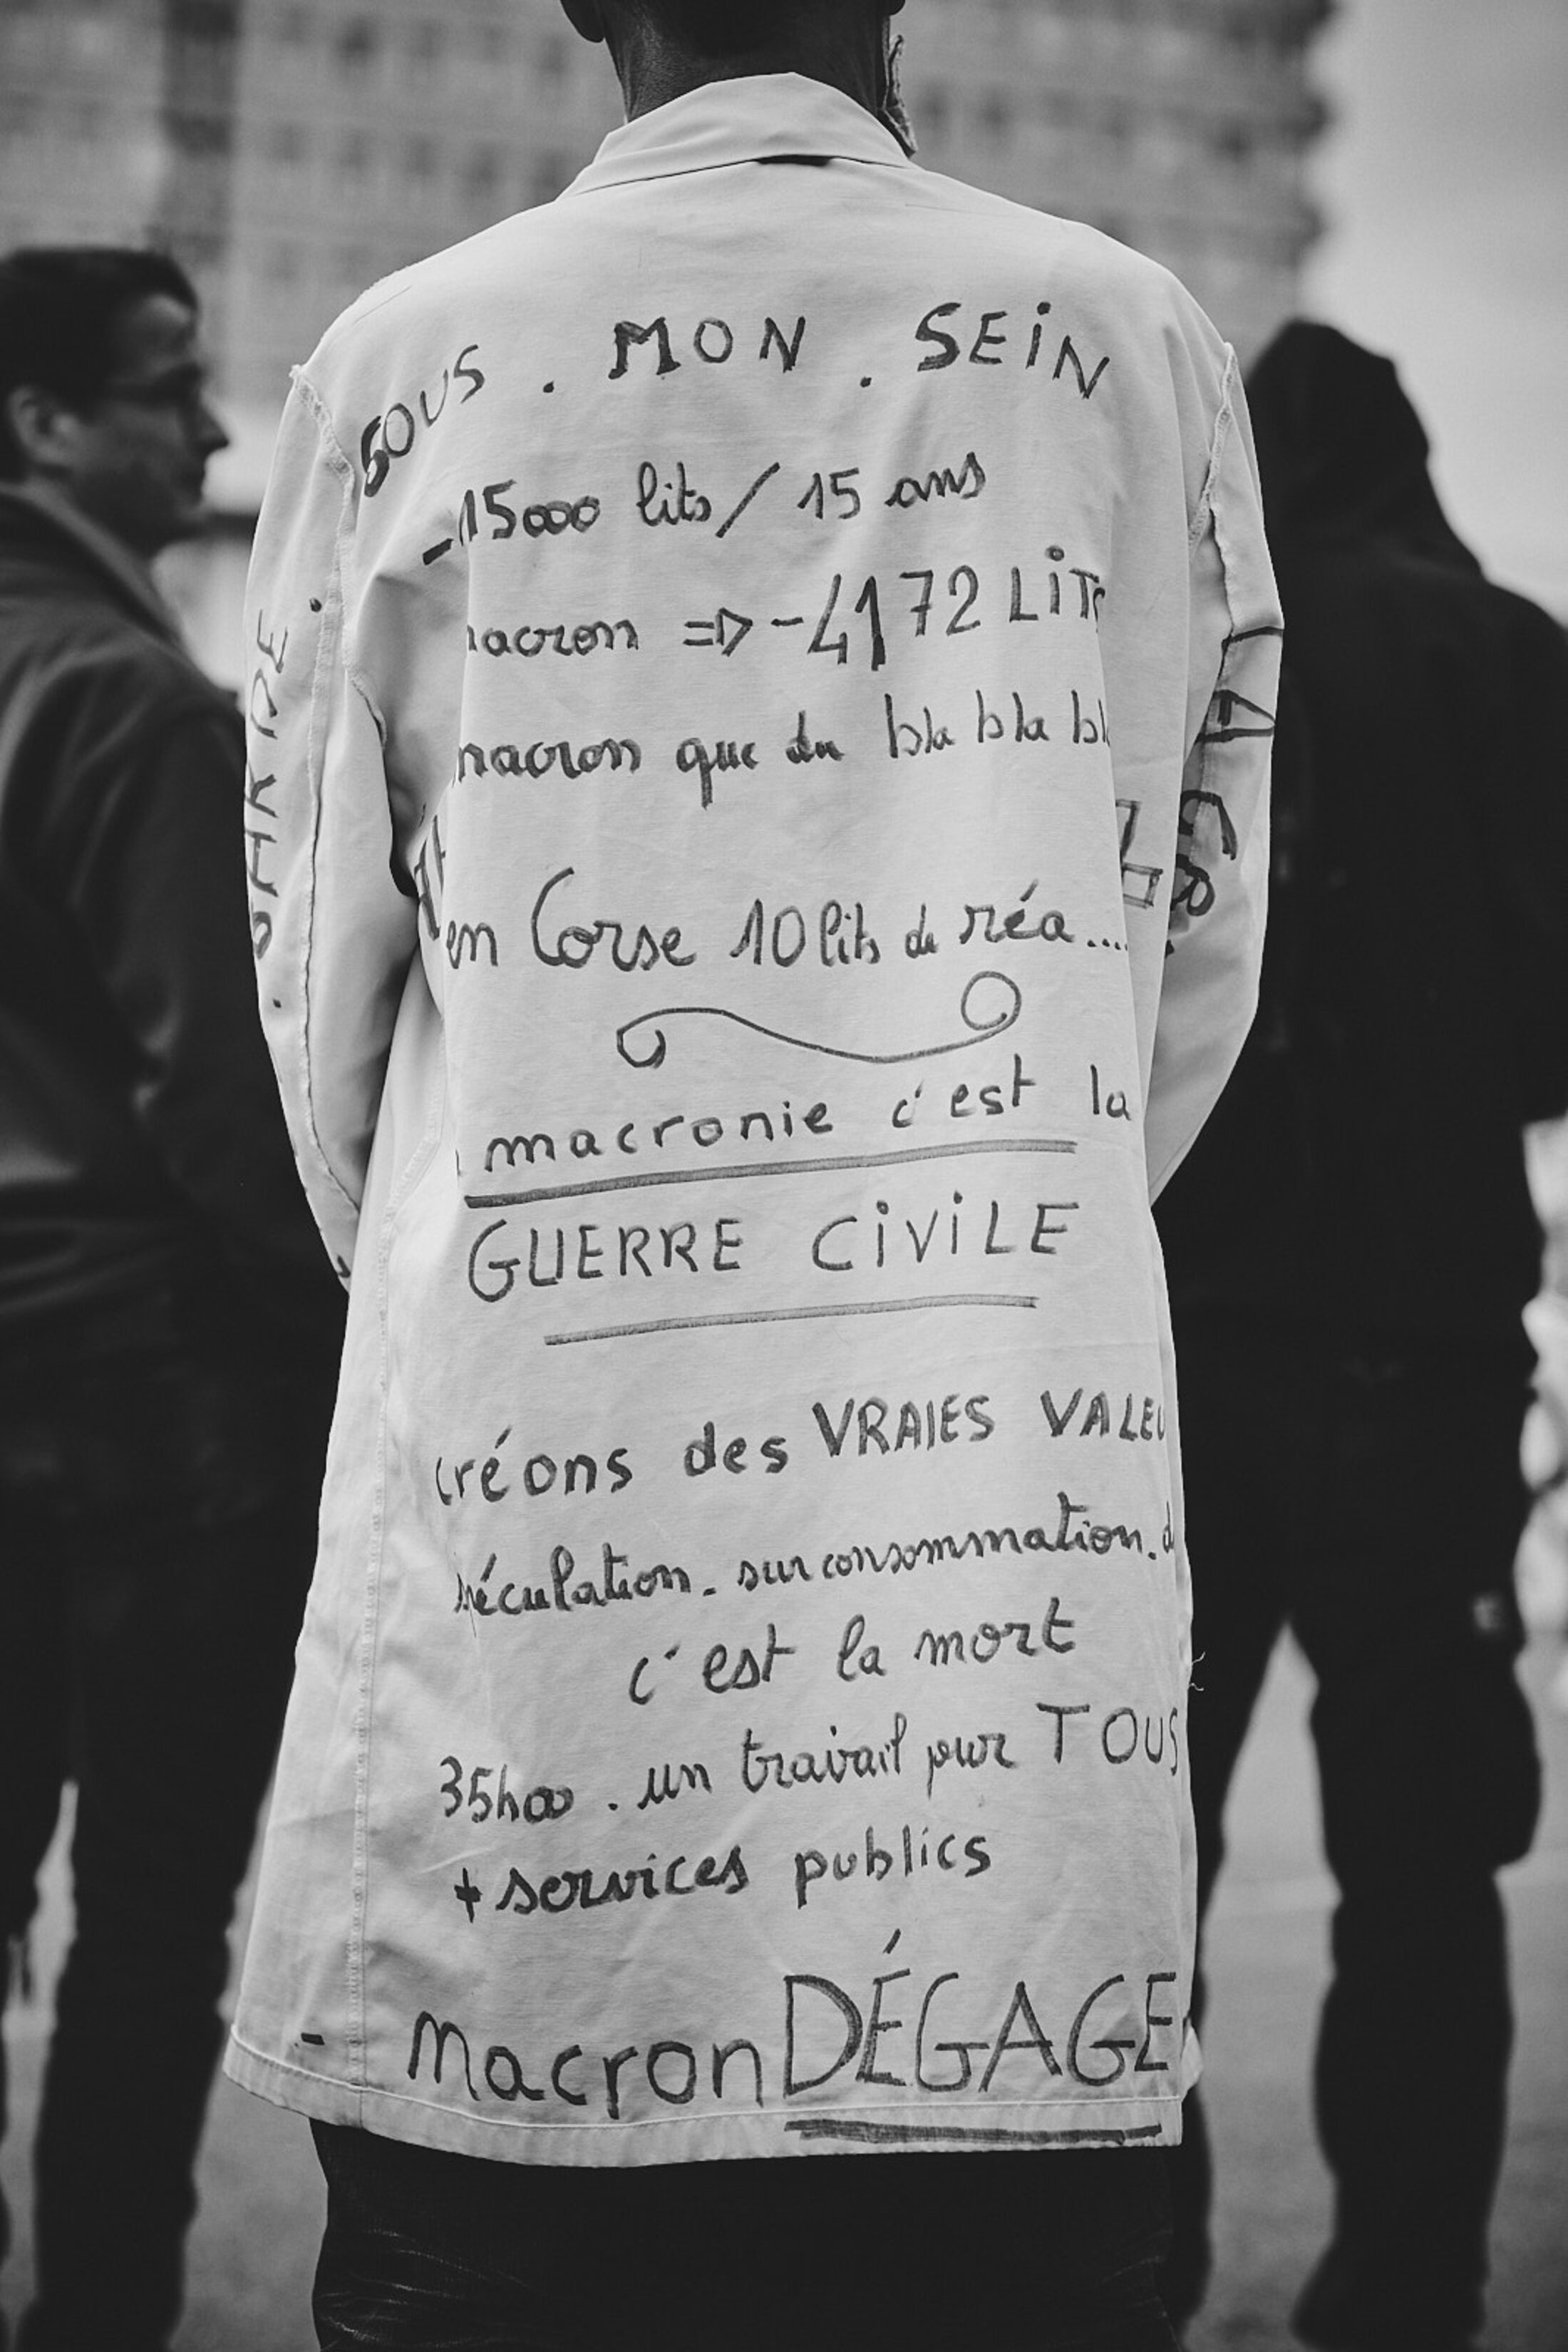 SOUS . MON . SEiN
-15000 lits / 15 ans
macron => -4172 LiTS
macron que du bla bla bl
en Corse 10 lits de réa....
macronie c'est la
GUERRE CiViLE
créons des VRAIES VALEU
spéculation - surconsommation.
c'est la mort
35h00 . un travail pour TOUS
+ services publics
- Macron DÉGAGE
. GARDE .